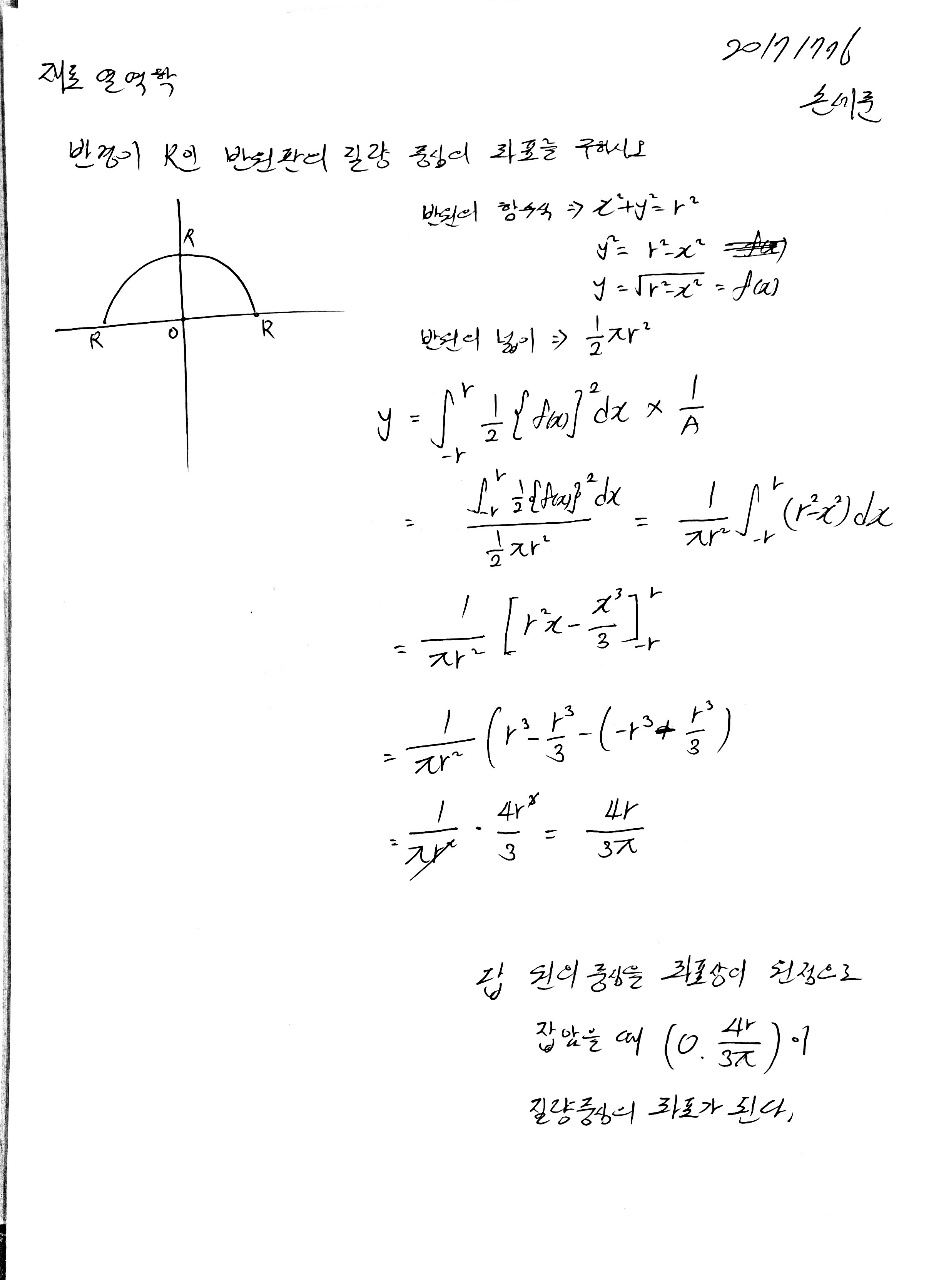 20171776
재료 열역학
손세준
반경이 R인 반원판의 질량 중심의 좌표를 구하시오
반원의 함수식 ⇒ x²+y²=r²
y² = r²-x²
y = √(r²-x²) = f(x)
R
R O R
반원의 넓이 ⇒ 1/2 πr²
y = ∫_{-r}^{r} 1/2 {f(x)}² dx × 1/A
= (∫_{-r}^{r} 1/2 {f(x)}² dx) / (1/2 πr²) = 1/(πr²) ∫_{-r}^{r} (r²-x²) dx
= 1/(πr²) [r²x - x³/3]_{-r}^{r}
= 1/(πr²) (r³ - r³/3 - (-r³ + r³/3)
= 1/(πr²) · 4r³/3 = 4r/3π
답 원의 중심을 좌표상의 원점으로
잡았을 때 (0. 4r/3π)이
질량중심의 좌표가 된다.